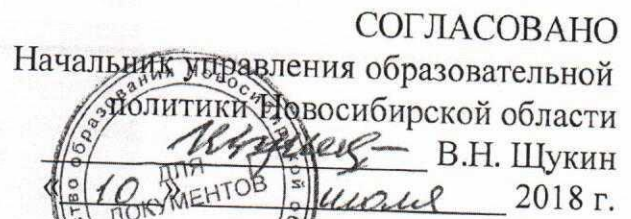 СОГЛАСОВАНО
Начальник управления образовательной
политики Новосибирской области
В.Н. Щукин
«10» июля 2018 г.
ДЛЯ
ДОКУМЕНТОВ
образования Новосиб